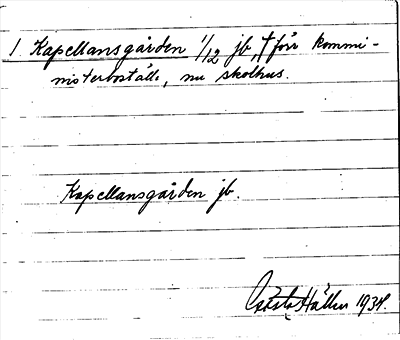 1. Kapellansgården 1/12 jb, † förr kommi-
nisterboställe, nu skolhus.
Kapellansgården jb.
Gösta Hallén 1934.